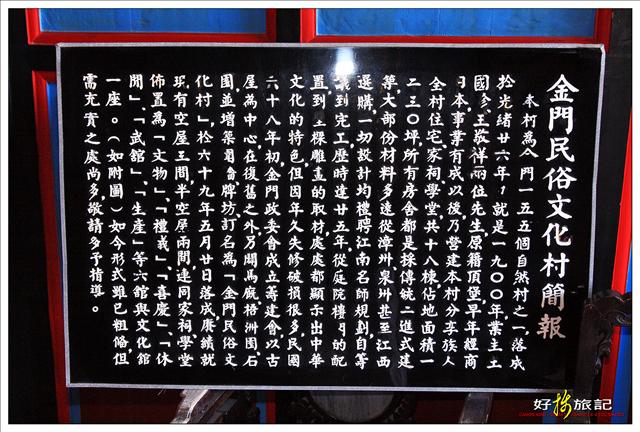 金門民俗文化村簡報
本村為金門一五五個自然村之一,落成
於光緒廿六年(就是一九○○年業主王
國珍王敬祥兩位先生原籍頂堡早年經商
日本事業有成以後乃營建本村分享族人
全村住宅、家祠學堂、共十八棟佔地面積一
二三○坪所有房舍都是採傳統二進式建
築大部份材料多遠從漳州泉州甚至江西
選購一切設計均禮聘江南名師規劃自籌
議到完工歷時達廿五年從庭院樓閣的配
置到一棵雕畫的取材處處都顯示出中華
文化的特色但因年久失修破損很多民國
六十八年初金門政委會成立籌建會以古
屋為中心在復舊之外另闢馬廄梧洲園石
園並增築牌坊訂名為「金門民俗文
化村」於六十九年五月廿日落成賡續就
現有空屋三間半空屋兩間連同家祠學堂
佈置為「文物」、「禮義」、「喜慶」、「休
閒」、「武館」、「生產」等六館與文化館
一座。(如附圖)如今形式雖已粗備但
需充實之處尚多敬請多予指導。
好旅記